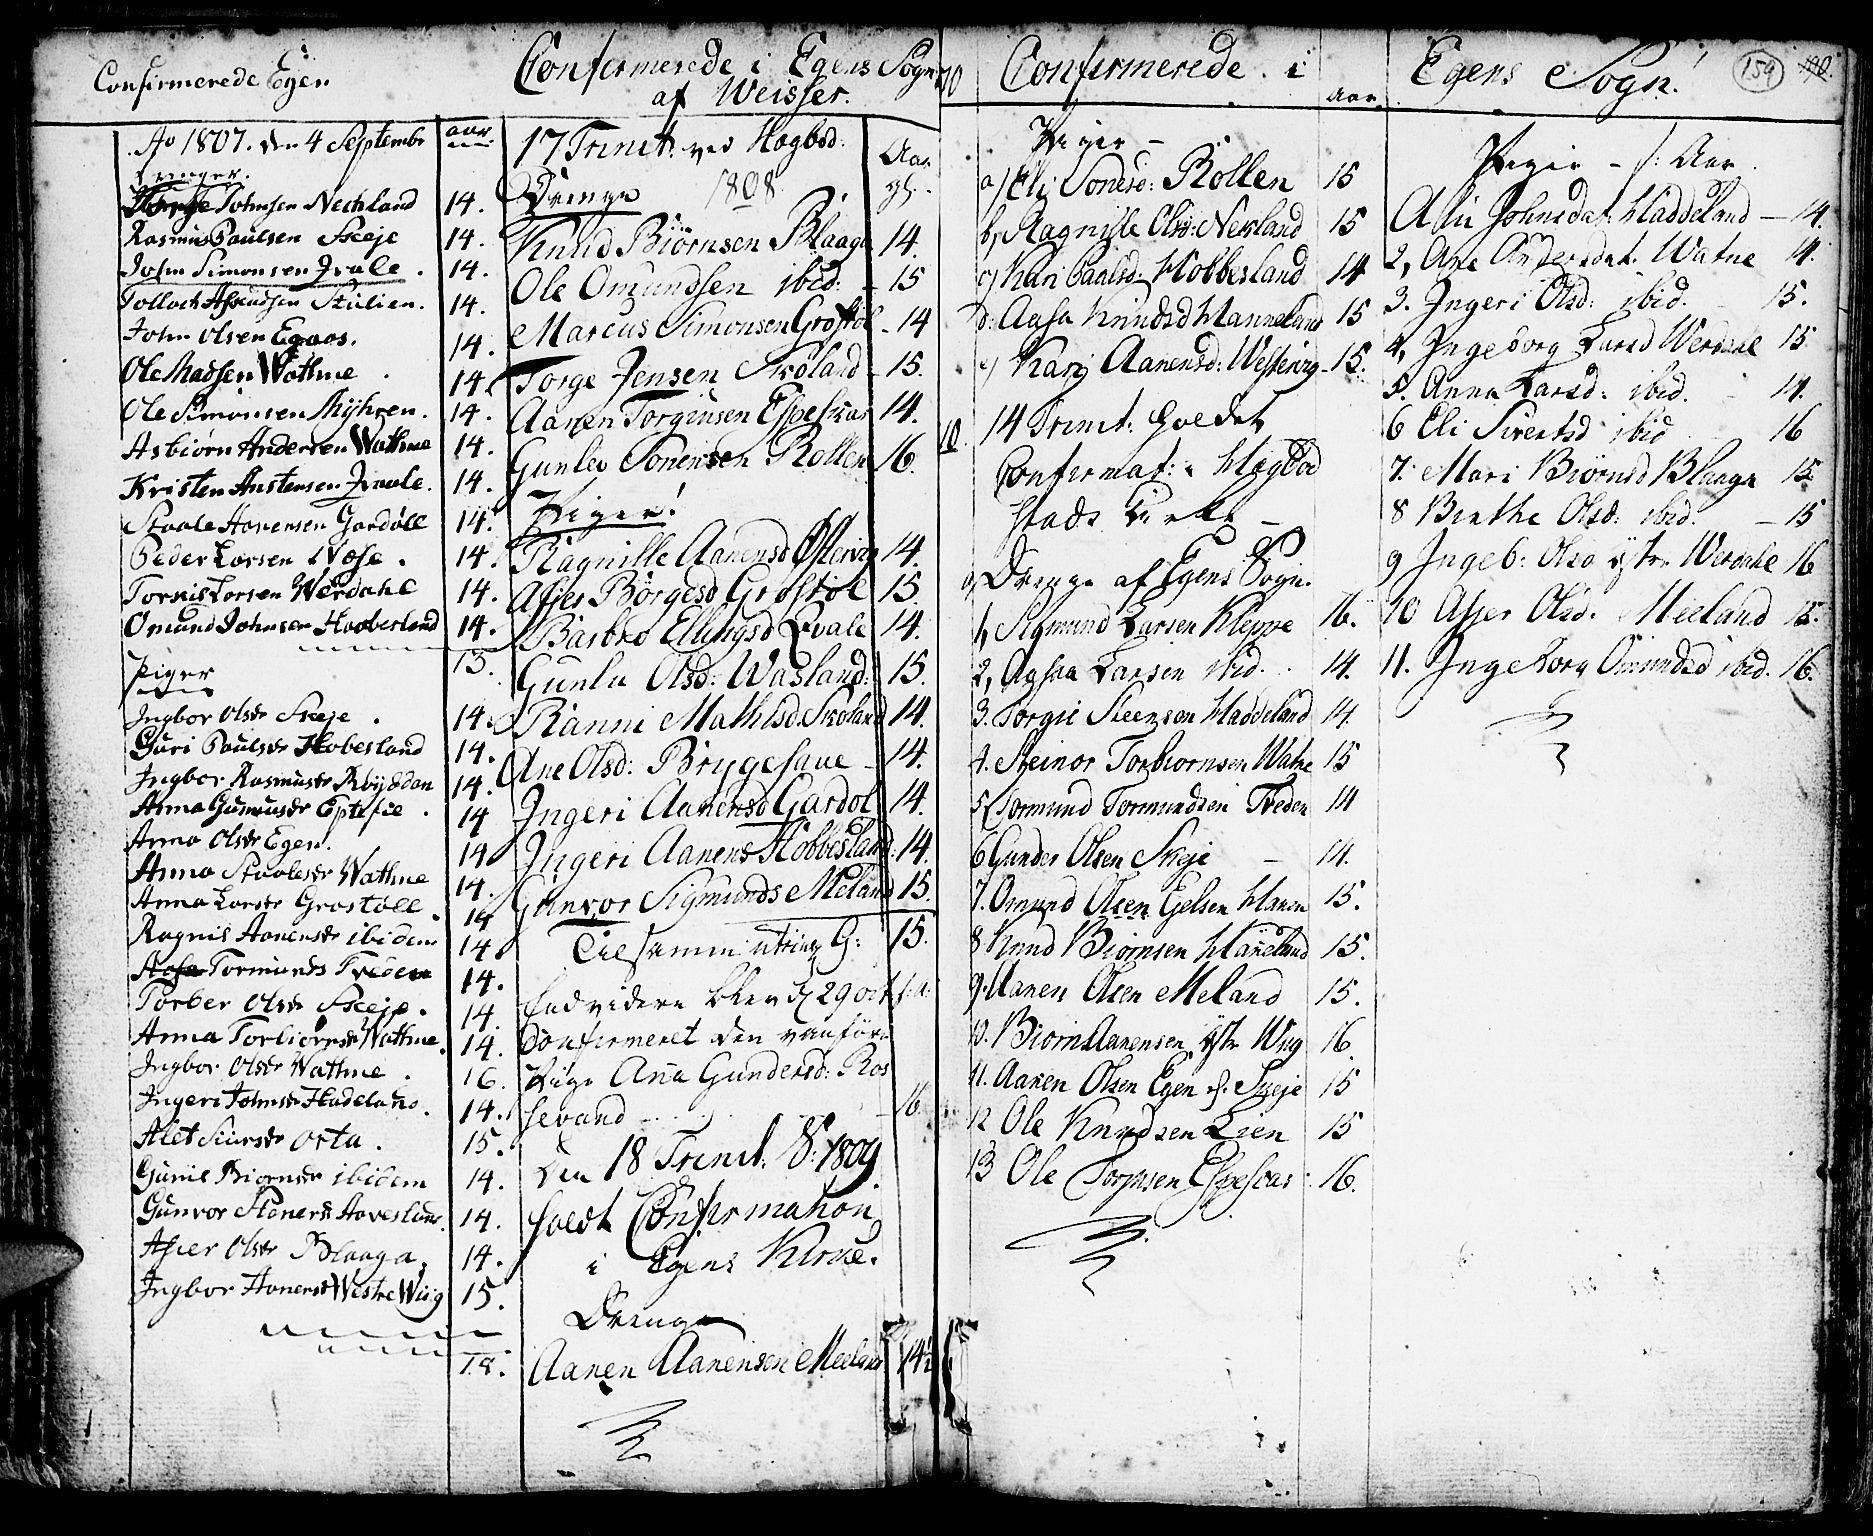 Confirmerede Egen
Ao 1807. den 4 Septembr aar
Drenger.
Johnsen Nechland 14.
Rasmus Paulsen Skeje 14.
John Simonsen Qvale. 14.
Tolloch Asbiudsen Stulien. 14.
John Olsen Egaas. 14.
Ole Madsen Wathne 14.
Ole Simonsen Myhren. 14.
Asbiørn Andersen Wathne 14.
Kristen Anstensen Qvale. 14.
Staale Aonensen Gardøll 14.
Peder Lorsen Nose. 14.
Tornis Lorsen Werdahl 14.
Omund Johnsen Haaberland 14.
13.
Piger
Ingbor Olsdr Skeje. 14.
Guri Paulsdr Hobesland 14.
Ingbor Rasmusdr Røysdan 14.
Anna Gunnusdr Eptestie. 14
Anna Olsdr Egen. 14
Anna Staalesdr Wathne 14.
Anna Lorsdr Grostøll. 14
Ragnil Aonensdr ibidem 14.
Aasa Tormunds Tveden 14.
Torber Olsdr Skeje. 14
Anna Torbiørnsdr Wathne. 14.
Ingbor Olsdr Wathne. 16.
Ingeri Johnsdr Hadeland. 14.
Alet Siursdr Orta. 15.
Gunil Biornsdr ibidem 14.
Gunvor Stenersd Aavesland. 14.
Asier Olsdr Blaaga. 14.
Ingbor Aonensd Westre Wiig 15.
18.
Confirmerede i Egens Sogn
af Weisser.
17 Trinit: ved Hægbod:
Drenge 1808 Aar gl.
Knud Biørnsen Blaaga 14.
Ole Omundsen ibid: 15
Marcus Simonsen Grostøl 14
Torge Jensen Skoland 15.
Aanen Torginsen Espeskar 14.
Gunlev Sonensen Rollen 16.
Piger!
Ragnille Aanensd Østerviig 14.
Asser Børgesd Grostøl 15.
Barbro Ellingsd Qvale 14.
Gunlu Olsd: Wasland: 15.
Ranni Mathisd: Skoland 14.
Ane Olsd: Brygesaue 14.
Ingeri Aanensd Gardol 14.
Ingeri Aanens Hobbesland: 14.
Gunvor Sigmunds Meland 15.
15.
Endvidere blev d 29 oct
Confirmeret den vanføre
Pige Ana Gundersd: Ros
sevand 16.
Den 18 Trinit: S: 1809
holdt Confirmation
i Egens Kirke.
Drenge
Aanen Aanensen Meeland 14½
Confirmerede i
Aar
Piger
a) Eli Sonesd: Rollen 15
b, Ragnille Olsd: Nekland 15
c) Kari Paalsd: Hobbesland 14
d. Aasa Knudsd Hanneland 15
e) Kari Aanensd: Westerviig 15.
14 Trinit: holdet
Confirmat: i Hægbo
stads Kirke
a, Drenge af Egens Sogn.
1, Sigmund Larsen Kleppe 16.
2, Agsaa Larsen ibid. 14.
3. Torgie Steensen Haddeland 14
4. Steinor Torbiornsen Watne 15
5. Tormund Tormundsen Tveden 14
6 Gunder Olsen Skeje 14.
7. Omund Olsen Egelsen Hanen 15.
8 Knud Biornsen Haneland 15.
9. Aanen Olsen Meland 15.
10. Biorn Aanensen ystr Wiig 16
11. Aanen Olsen Egen s. Skeje 15
12 Ole Knudsen Lien 15
13 Ole Torgusen Espeskar 16.
Egens Sogn!
159
Piger Aar
Alii Johnsdat: Haddeland 14.
2, Ane Andersdat. Watne 14.
3. Ingeri Olsd: ibid. 15.
4, Ingeborg Larsd Werdahl 15
5. Anna Larsd: ibid. 14.
6 Eli Sivertsd ibid 16
7. Mari Biørnsd Blaaga 15.
8 Birthe Olsd: ibid. 15
9 Ingeb: Olsd ystr. Werdahl 16
10 Asser Olsd. Meeland 15.
11. Ingeborg Omundsd ibid. 16.